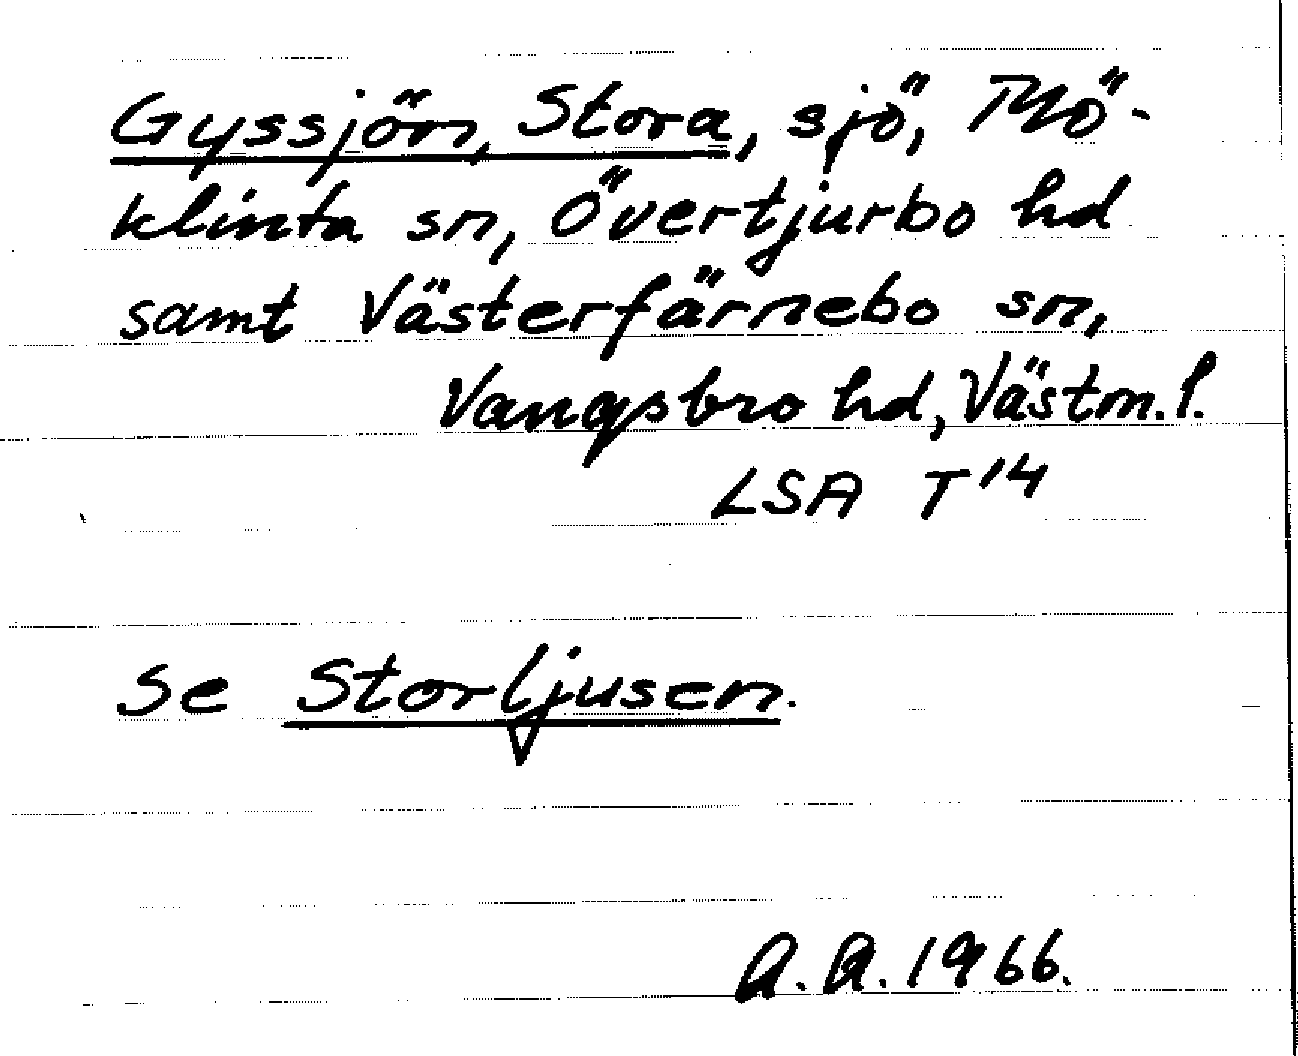 Gyssjön, Stora, sjö, Mö-
klinta sn, Övertjurbo hd
samt Västerfärnebo sn,
Vangsbro hd, Västm. l.
LSA T14
Se Storljusen.
A.A. 1966.